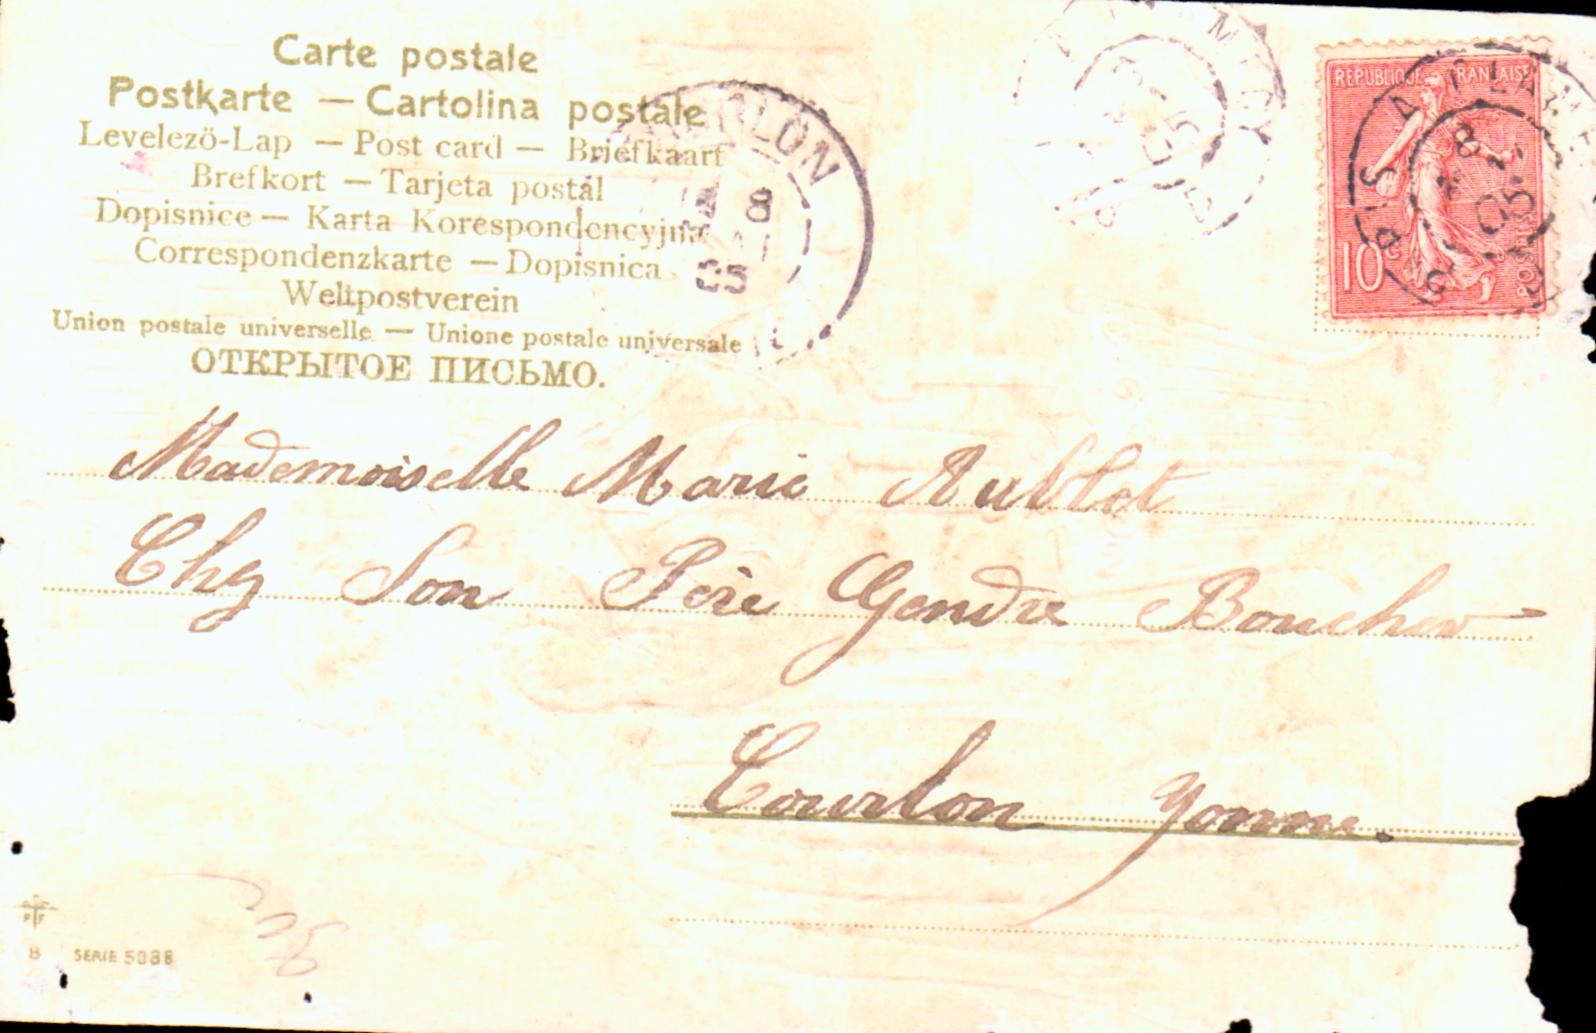 Carte postale
Postkarte — Cartolina postale
Levelezö-Lap — Post card — Briefkaart
Brefkort — Tarjeta postál
Dopisnice — Karta Korespondencyjna
Correspondenzkarte — Dopisnica
Weltpostverein
Union postale universelle — Unione postale universale
ОТКРЫТОЕ ПИСЬМО.
RLON
8
05
REPUBLIQUE FRANÇAISE
10c
POSTES
8 5
05
Mademoiselle Marie Aublet
Chez Son Père Gendre Boucher
Courlon Yonne.
PF
B SERIE 5088